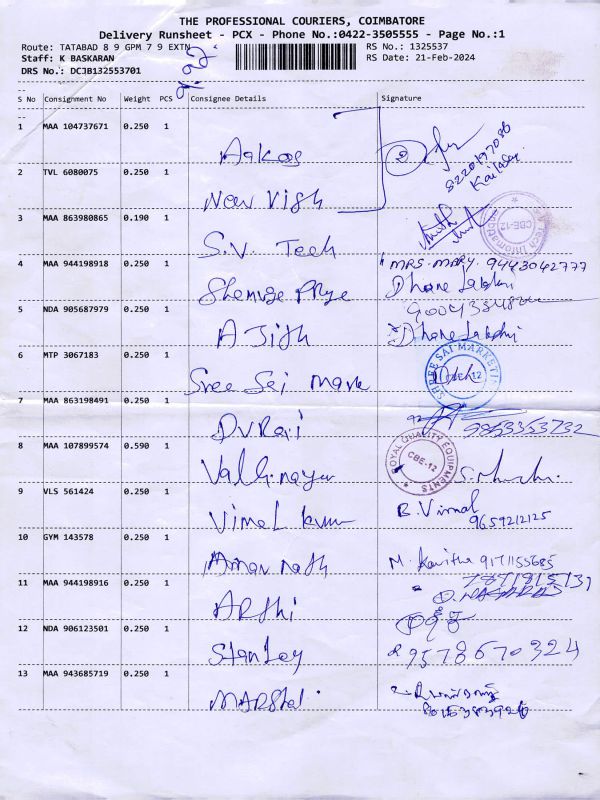 THE PROFESSIONAL COURIERS, COIMBATORE
Delivery Runsheet - PCX - Phone No.:0422-3505555 - Page No.:1
Route: TATABAD 8 9 GPM 7 9 EXTN
RS No.: 1325537
Staff: K BASKARAN
RS Date: 21-Feb-2024
DRS No.: DCJB132553701
S No Consignment No Weight PCS Consignee Details Signature
1 MAA 104737671 0.250 1
2
8220197086
Kailash
2 TVL 6080075 0.250 1
3 MAA 863980865 0.190 1
S.V. Tech
CBE-12
4 MAA 944198918 0.250 1
MRS. MARY. 9443042777
5 NDA 905687979 0.250 1
AJith
6 MTP 3067183 0.250 1
Sree Sai Mark
SHREE SAI MARKETING
7 MAA 863198491 0.250 1
DURAI
8 MAA 107899574 0.590 1
ROYAL QUALITY EQUIPMENTS
CBE-12
9 VLS 561424 0.250 1
Vimal kum
B. Vimal
9659212125
10 GYM 143578 0.250 1
Amar nath
M. Kavitha 9171155685
11 MAA 944198916 0.250 1
7871815131
ARthi
12 NDA 906123501 0.250 1
Stanley
9578670324
13 MAA 943685719 0.250 1
MARShal